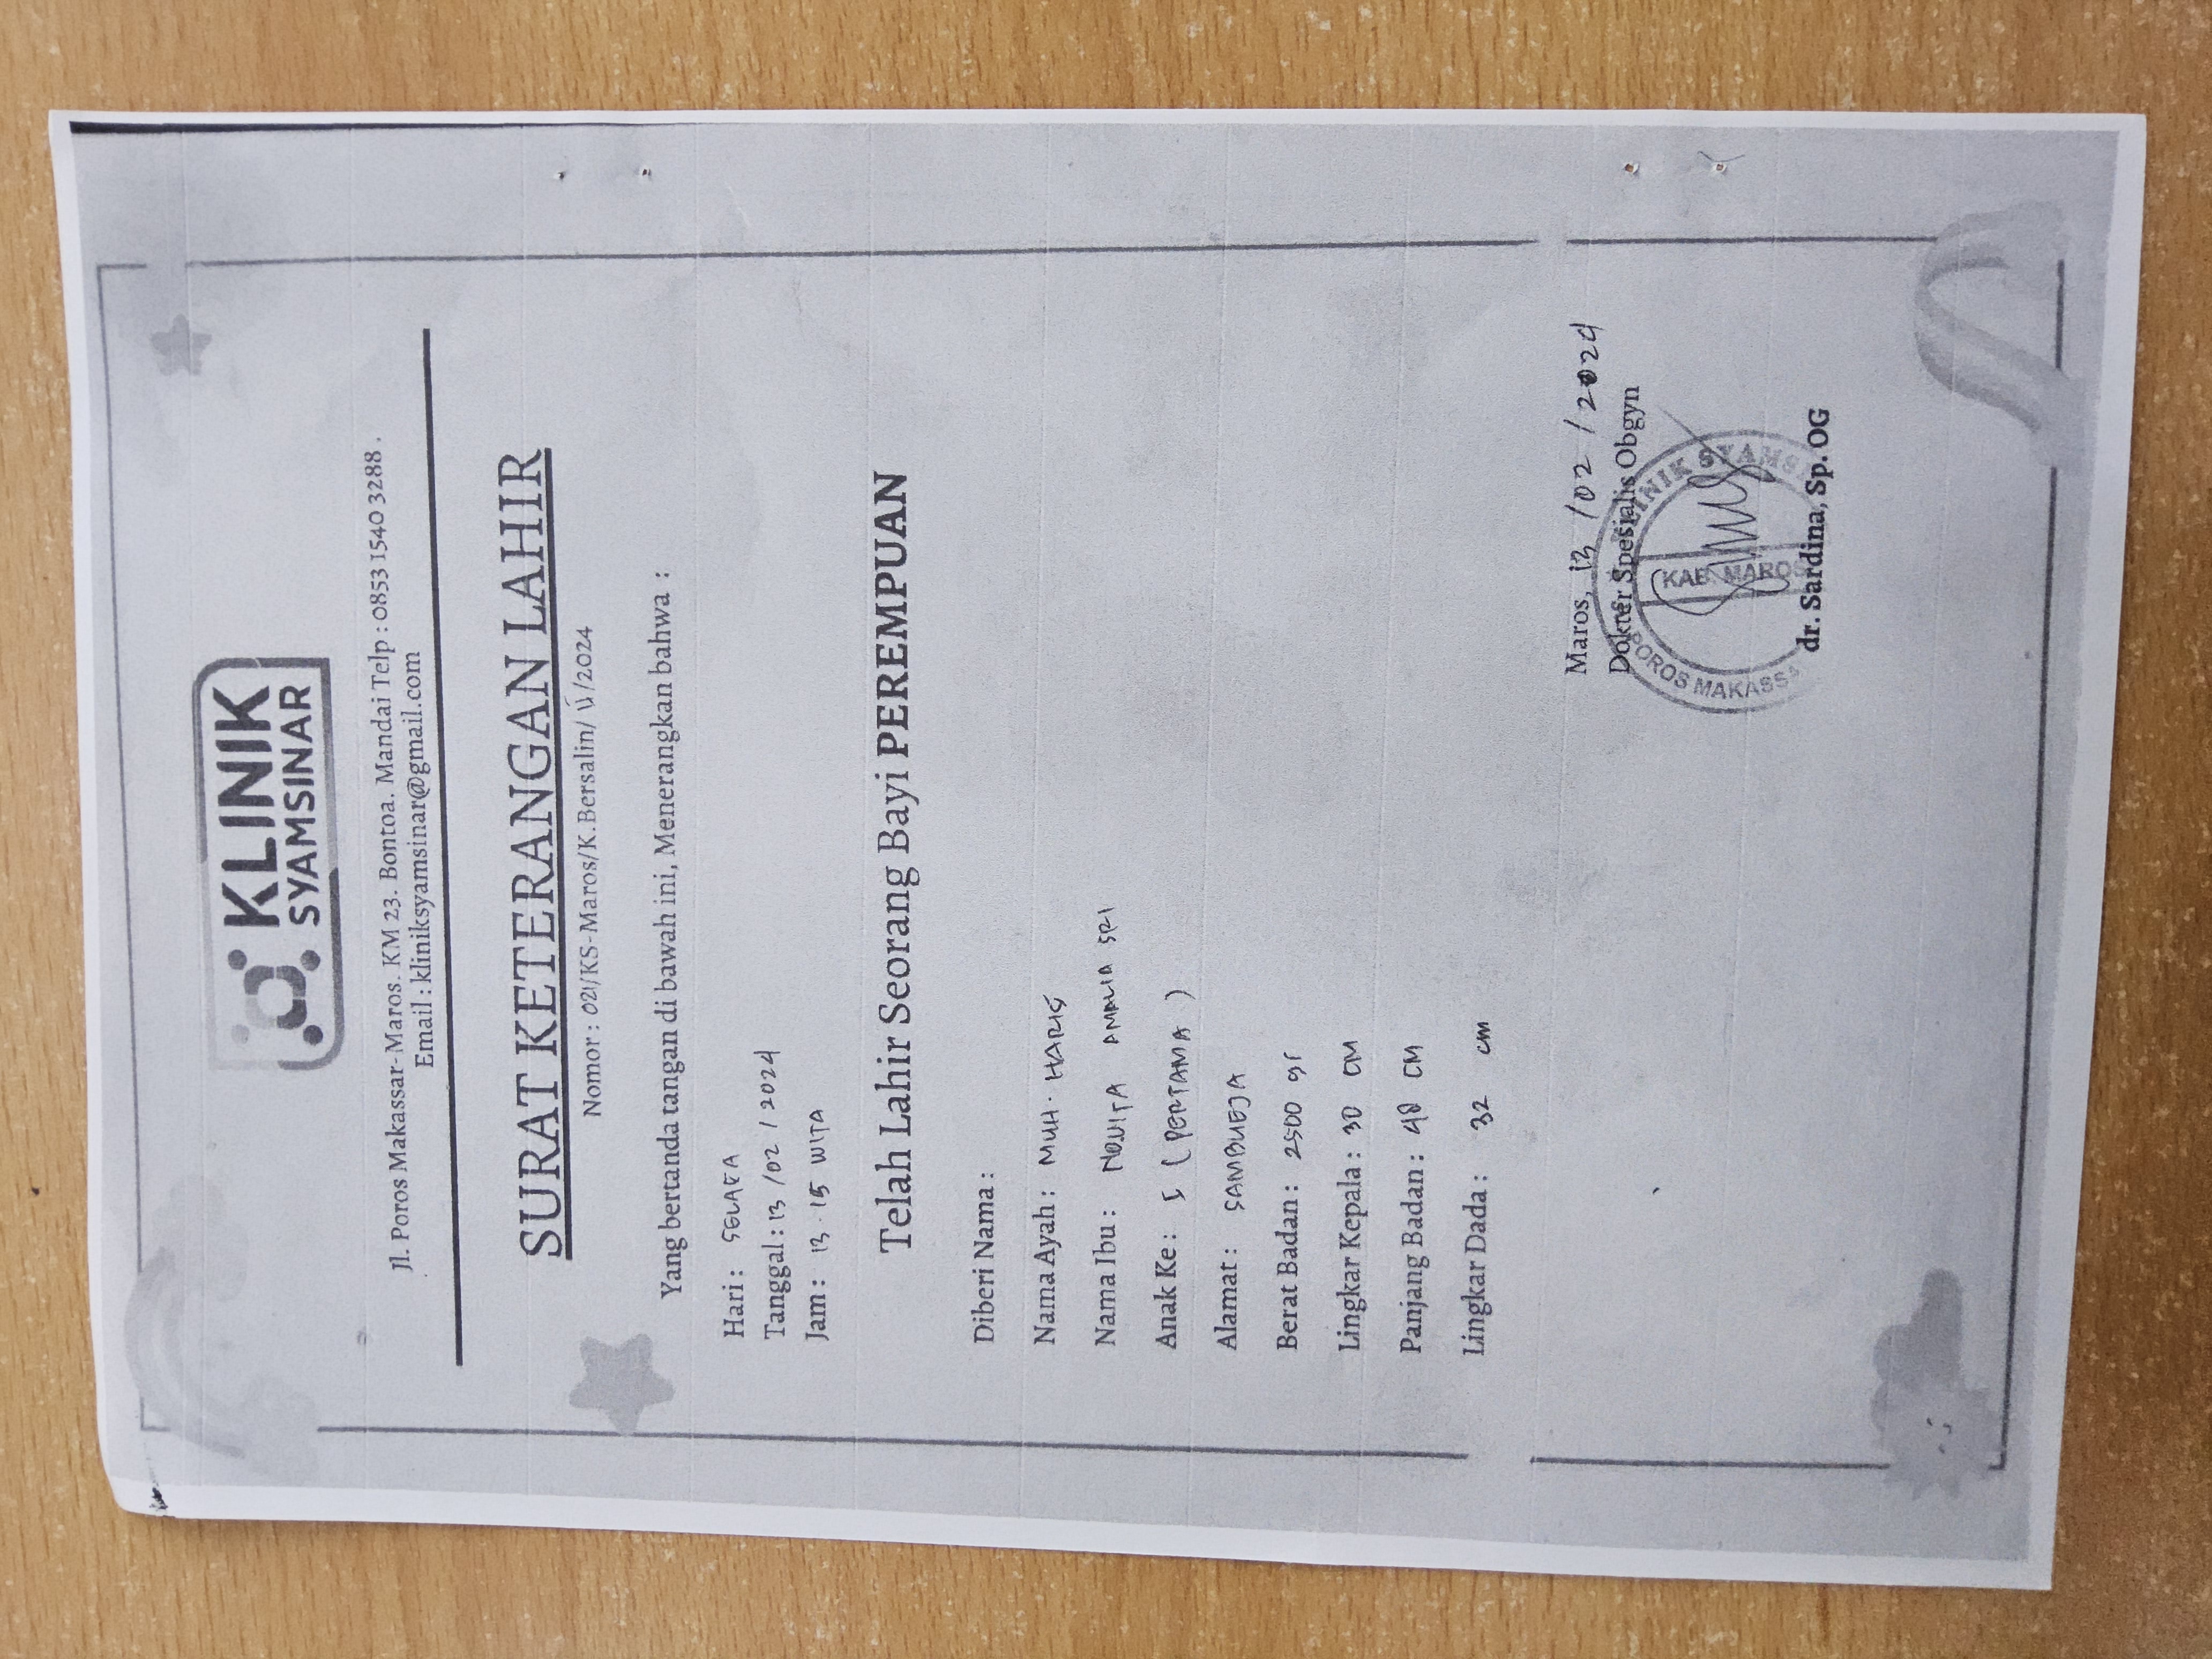 KLINIK
SYAMSINAR
Jl. Poros Makassar-Maros. KM 23. Bontoa. Mandai Telp : 0853 1540 3288 .
Email : kliniksyamsinar@gmail.com
SURAT KETERANGAN LAHIR
Nomor : 021/KS-Maros/K.Bersalin/ II /2024
Yang bertanda tangan di bawah ini, Menerangkan bahwa :
Hari : SELASA
Tanggal : 13 /02 / 2024
Jam : 13 . 15 WITA
Telah Lahir Seorang Bayi PEREMPUAN
Diberi Nama :
Nama Ayah : MUH. HARIS
Nama Ibu : NOVITA AMALIA SRI
Anak Ke : I ( PERTAMA )
Alamat : SAMBUEJA
Berat Badan : 2500 gr
Lingkar Kepala : 30 CM
Panjang Badan : 48 CM
Lingkar Dada : 32 cm
Maros, 13 /02 / 2024
Dokter Spesialis Obgyn
POROS MAKASS
KLINIK SYAMSI
KAB. MAROS
dr. Sardina, Sp. OG